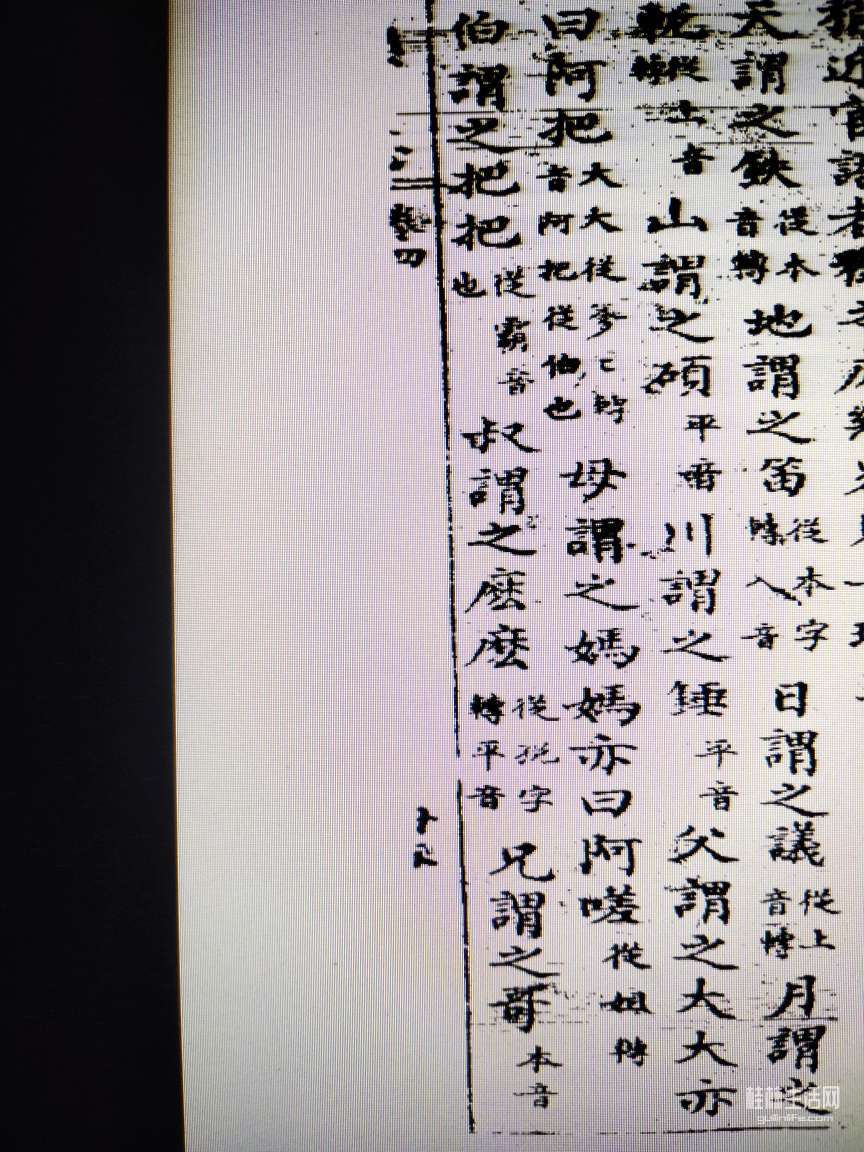 近官語者
天謂之鉄從本音轉地謂之笛從本字轉入音日謂之議從上音轉月謂之
從上音轉山謂之碩平音川謂之錘平音父謂之大大亦
曰阿把大大從爹音阿把從伯也母謂之媽媽亦曰阿嗟從姐轉
伯謂之把把從霸音也叔謂之麽麽從字轉平音兄謂之哥本音
卷四
桂林生活网
guilinlife.com